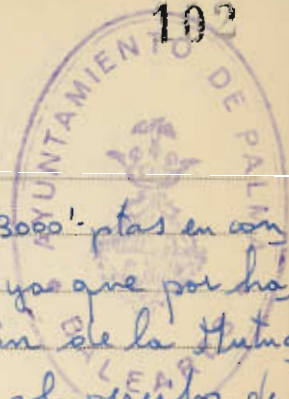 102
AYUNTAMIENTO DE PALMA
BALEAR
3000'- ptas en con
ya que por ha
ón de la Mutua
de